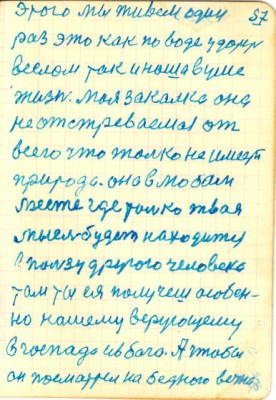 этого мы живем один 57
раз это как по воде удари
веслом так и наша в уме
жизн. Моя закалка она
не отстреваемая от
всего что толко не имеет
природа. она в любом
месте где толко твая
мысел будет находитця
в ползу другого человека
там ты ея получеш особен-
но нашему верующему
в господа и в бога. А чтобы
он посмотрел на бедного